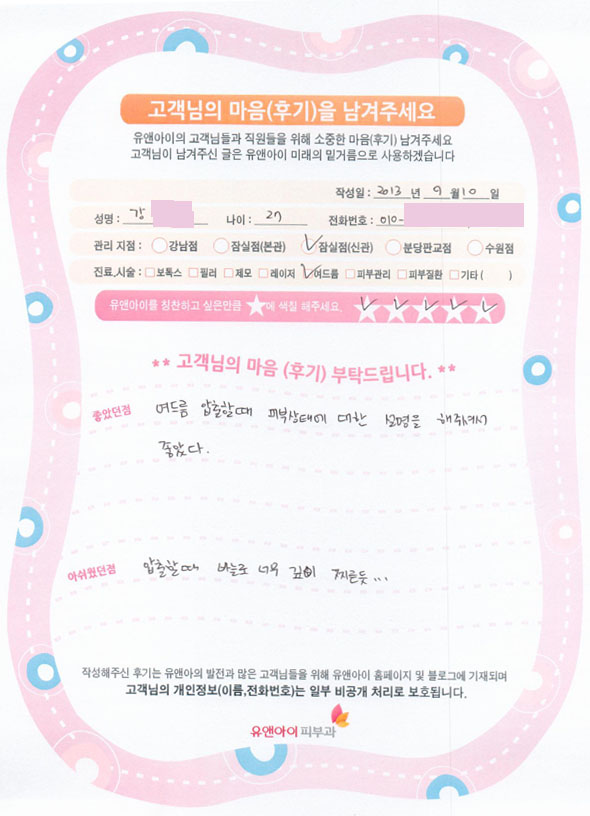 고객님의 마음(후기)을 남겨주세요
유앤아이의 고객님들과 직원들을 위해 소중한 마음(후기) 남겨주세요
고객님이 남겨주신 글은 유앤아이 미래의 밑거름으로 사용하겠습니다
작성일 : 2013 년 9 월 10 일
성명 : 강 나이 : 27 전화번호 : 010-
관리 지점 : 강남점 잠실점(본관) 잠실점(신관) 분당판교점 수원점
진료,시술 : 보톡스 필러 제모 레이저 여드름 피부관리 피부질환 기타 ( )
유앤아이를 칭찬하고 싶은만큼 ★에 색칠 해주세요.
** 고객님의 마음 (후기) 부탁드립니다. **
좋았던점 여드름 압출할때 피부상태에 대한 설명을 해주셔서
좋았다.
아쉬웠던점 압출할때 바늘로 너무 깊이 찌른듯...
작성해주신 후기는 유앤아의 발전과 많은 고객님들을 위해 유앤아이 홈페이지 및 블로그에 기재되며
고객님의 개인정보(이름,전화번호)는 일부 비공개 처리로 보호됩니다.
유앤아이피부과